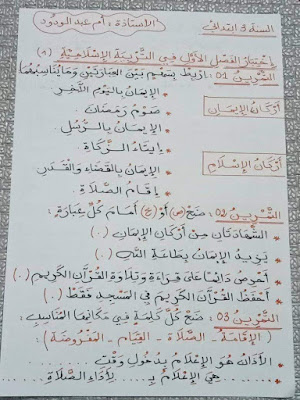 السنة 3 ابتدائي
الأستاذة: أم عبد الودود
اختبار الفصل الأول في التربية الإسلامية (1)
التمرين 01: اربط بسهم بين العبارتين وما يناسبهما
الإيمان باليوم الآخر
أركان الإيمان
صوم رمضان.
الإيمان بالرسل.
إيتاء الزكاة
أركان الإسلام
الإيمان بالقضاء والقدر.
إقام الصلاة.
التمرين 02: ضع (ص) أو (خ) أمام كل عبارة:
الشهادتان من أركان الإيمان (.)
يزيد الإيمان بطاعة الله (.)
أحرص دائما على قراءة وتلاوة القرآن الكريم (.)
أحفظ القرآن الكريم في المسجد فقط (.)
التمرين 03: ضع كل كلمة في مكانها المناسب:
(الإقامة - الصلاة - القيام - المفروضة)
الأذان هو الإعلام بدخول وقت ........
........ هي الإعلام بـ ........ لأداء الصلاة ........